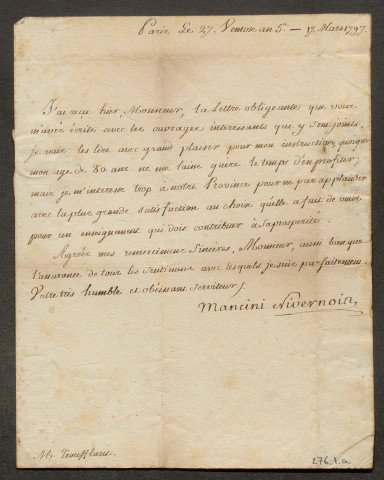 Paris Le 27. Ventose an 5e. — 17. Mars 1797.
J'ai reçu hier, Monsieur, la Lettre obligeante que vous
m'avés écrite avec les ouvrages intéressants que y sont joints.
je vais les lire avec grand plaisir pour mon instruction, quoique
mon age de 80 ans ne me laisse guère le temps d'en profiter;
mais je m'interesse trop à notre Province pour ne pas applaudir
avec la plus grande satisfaction au choix qu'elle a fait de vous
pour un enseignement qui doit contribuer à sa prosperité.
Agréez mes remerciments sinceres, Monsieur, ainsi bien que
l'assurance de tous les sentimens avec lesquels je suis parfaitement
Votre très humble et obéissant serviteur,
Mancini Nivernois
Mr.
276.1.a